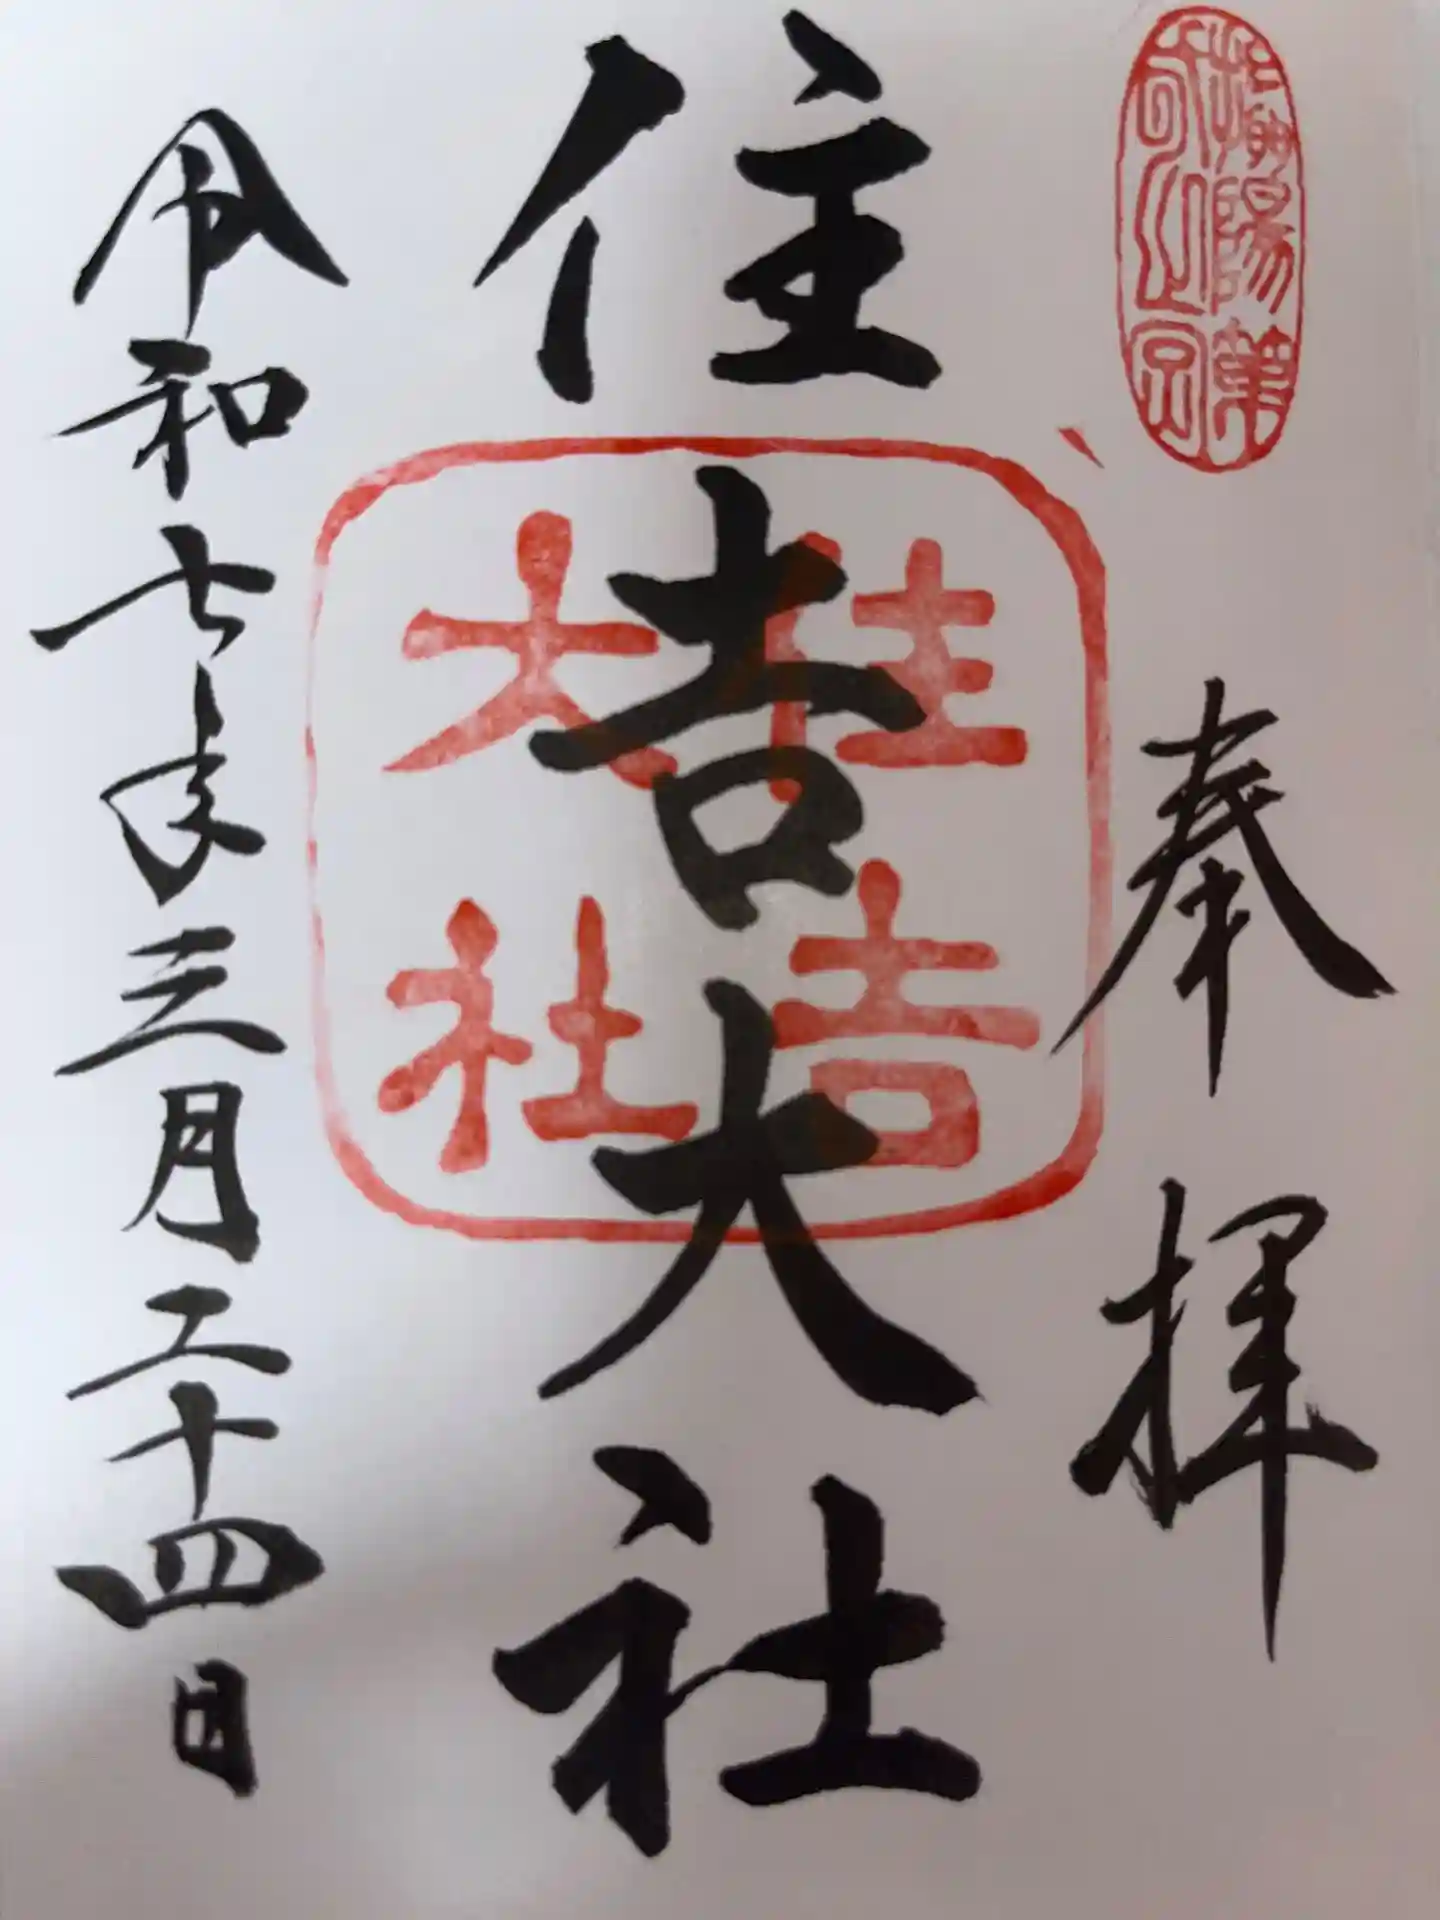 摂陽第一宮
奉拝
住吉大社
住吉
大社
令和七年三月二十四日